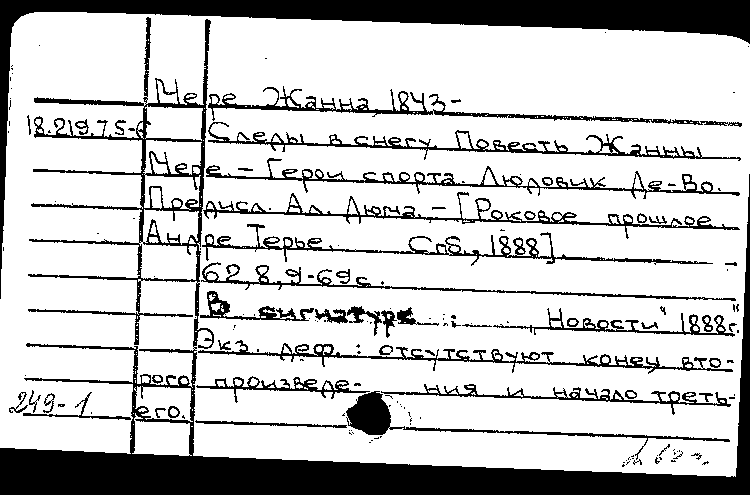 Мере Жанна, 1843-
18.219.7.5-6 Следы в снегу. Повесть Жанны
Мере. - Герои спорта. Людовик Де-Во.
Предисл. Ал. Дюма. - [Роковое прошлое.
Андре Терье. Спб., 1888].
62,8,9-69 с.
В сигнатуре: „Новости" 1888г."
Экз. деф.: отсутствуют конец вто-
рого произведе- ния и начало треть-
249-1 его.